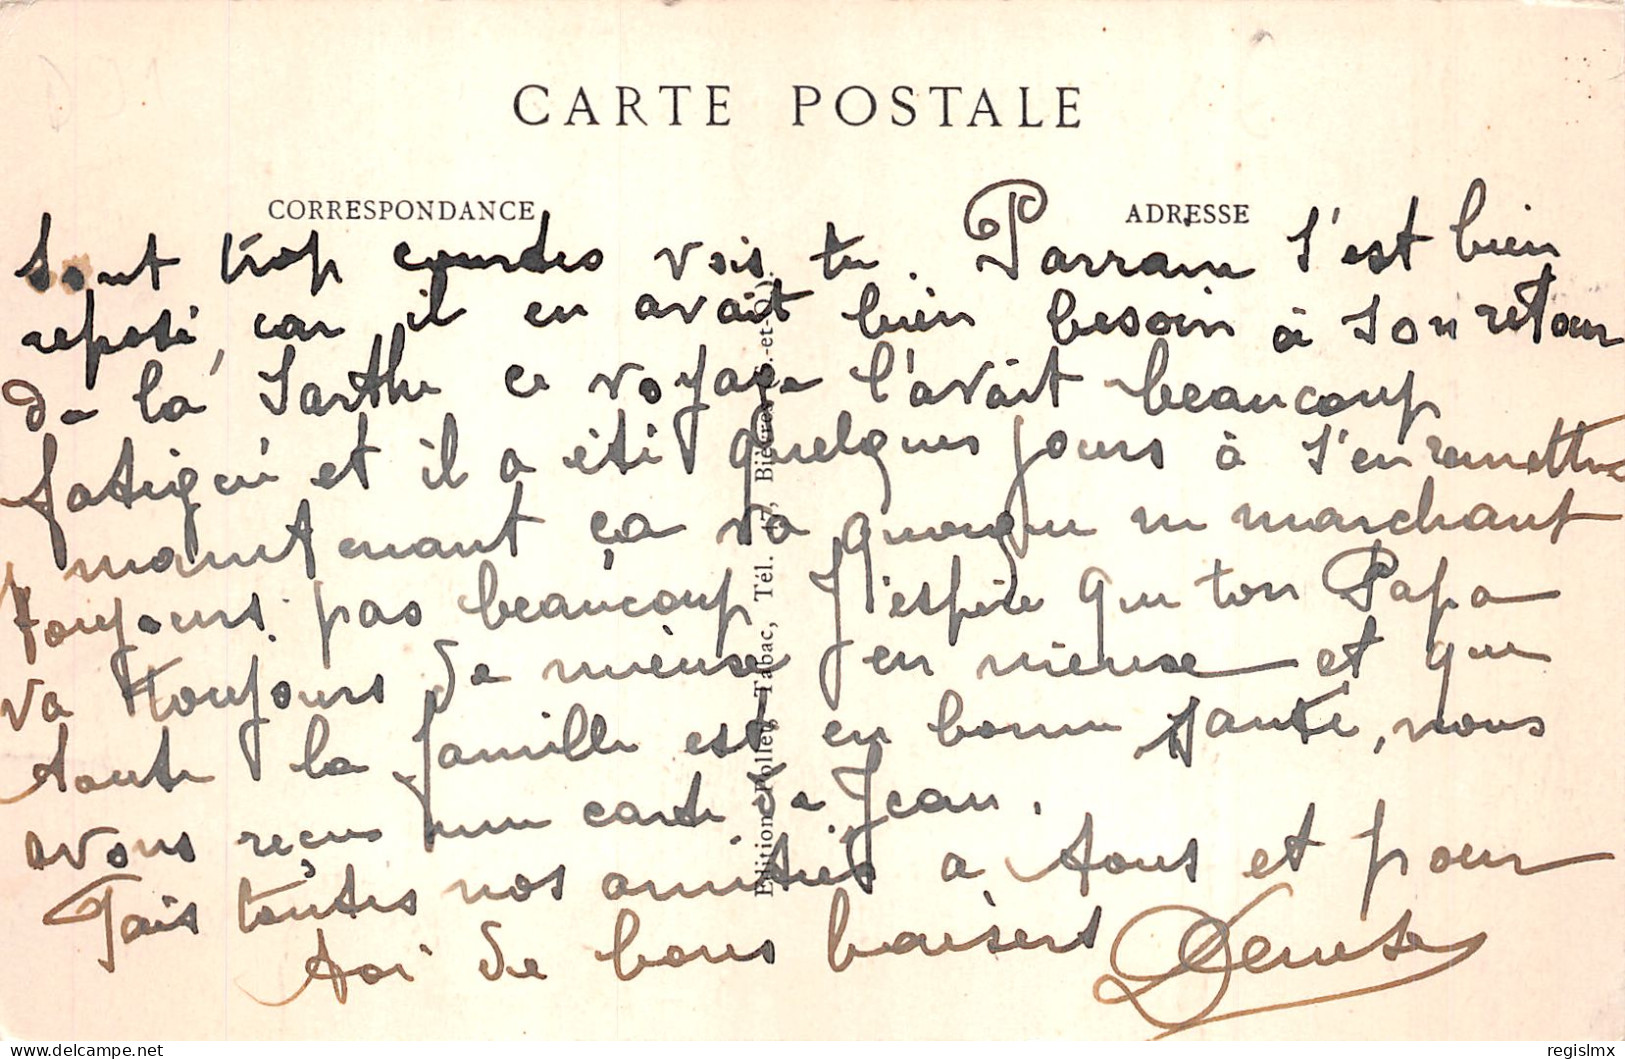 CARTE POSTALE
CORRESPONDANCE
ADRESSE
sont trop courtes vois tu. Parrain s'est bien
reposé, car il en avait bien besoin à son retour
de la Sarthe ce voyage l'avait beaucoup
fatigué et il a été quelques jours à s'en remettre
maintenant ça va quoique ne marchant
toujours pas beaucoup J'espère que ton Papa
va toujours de mieux en mieux et que
toute la famille est en bonne santé, nous
avons reçus une carte de Jean.
Fais toutes nos amitiés a tous et pour
toi de bons baisers Denise
Edition Tabac, Tél. 17, Bièvres -et-
regislmx